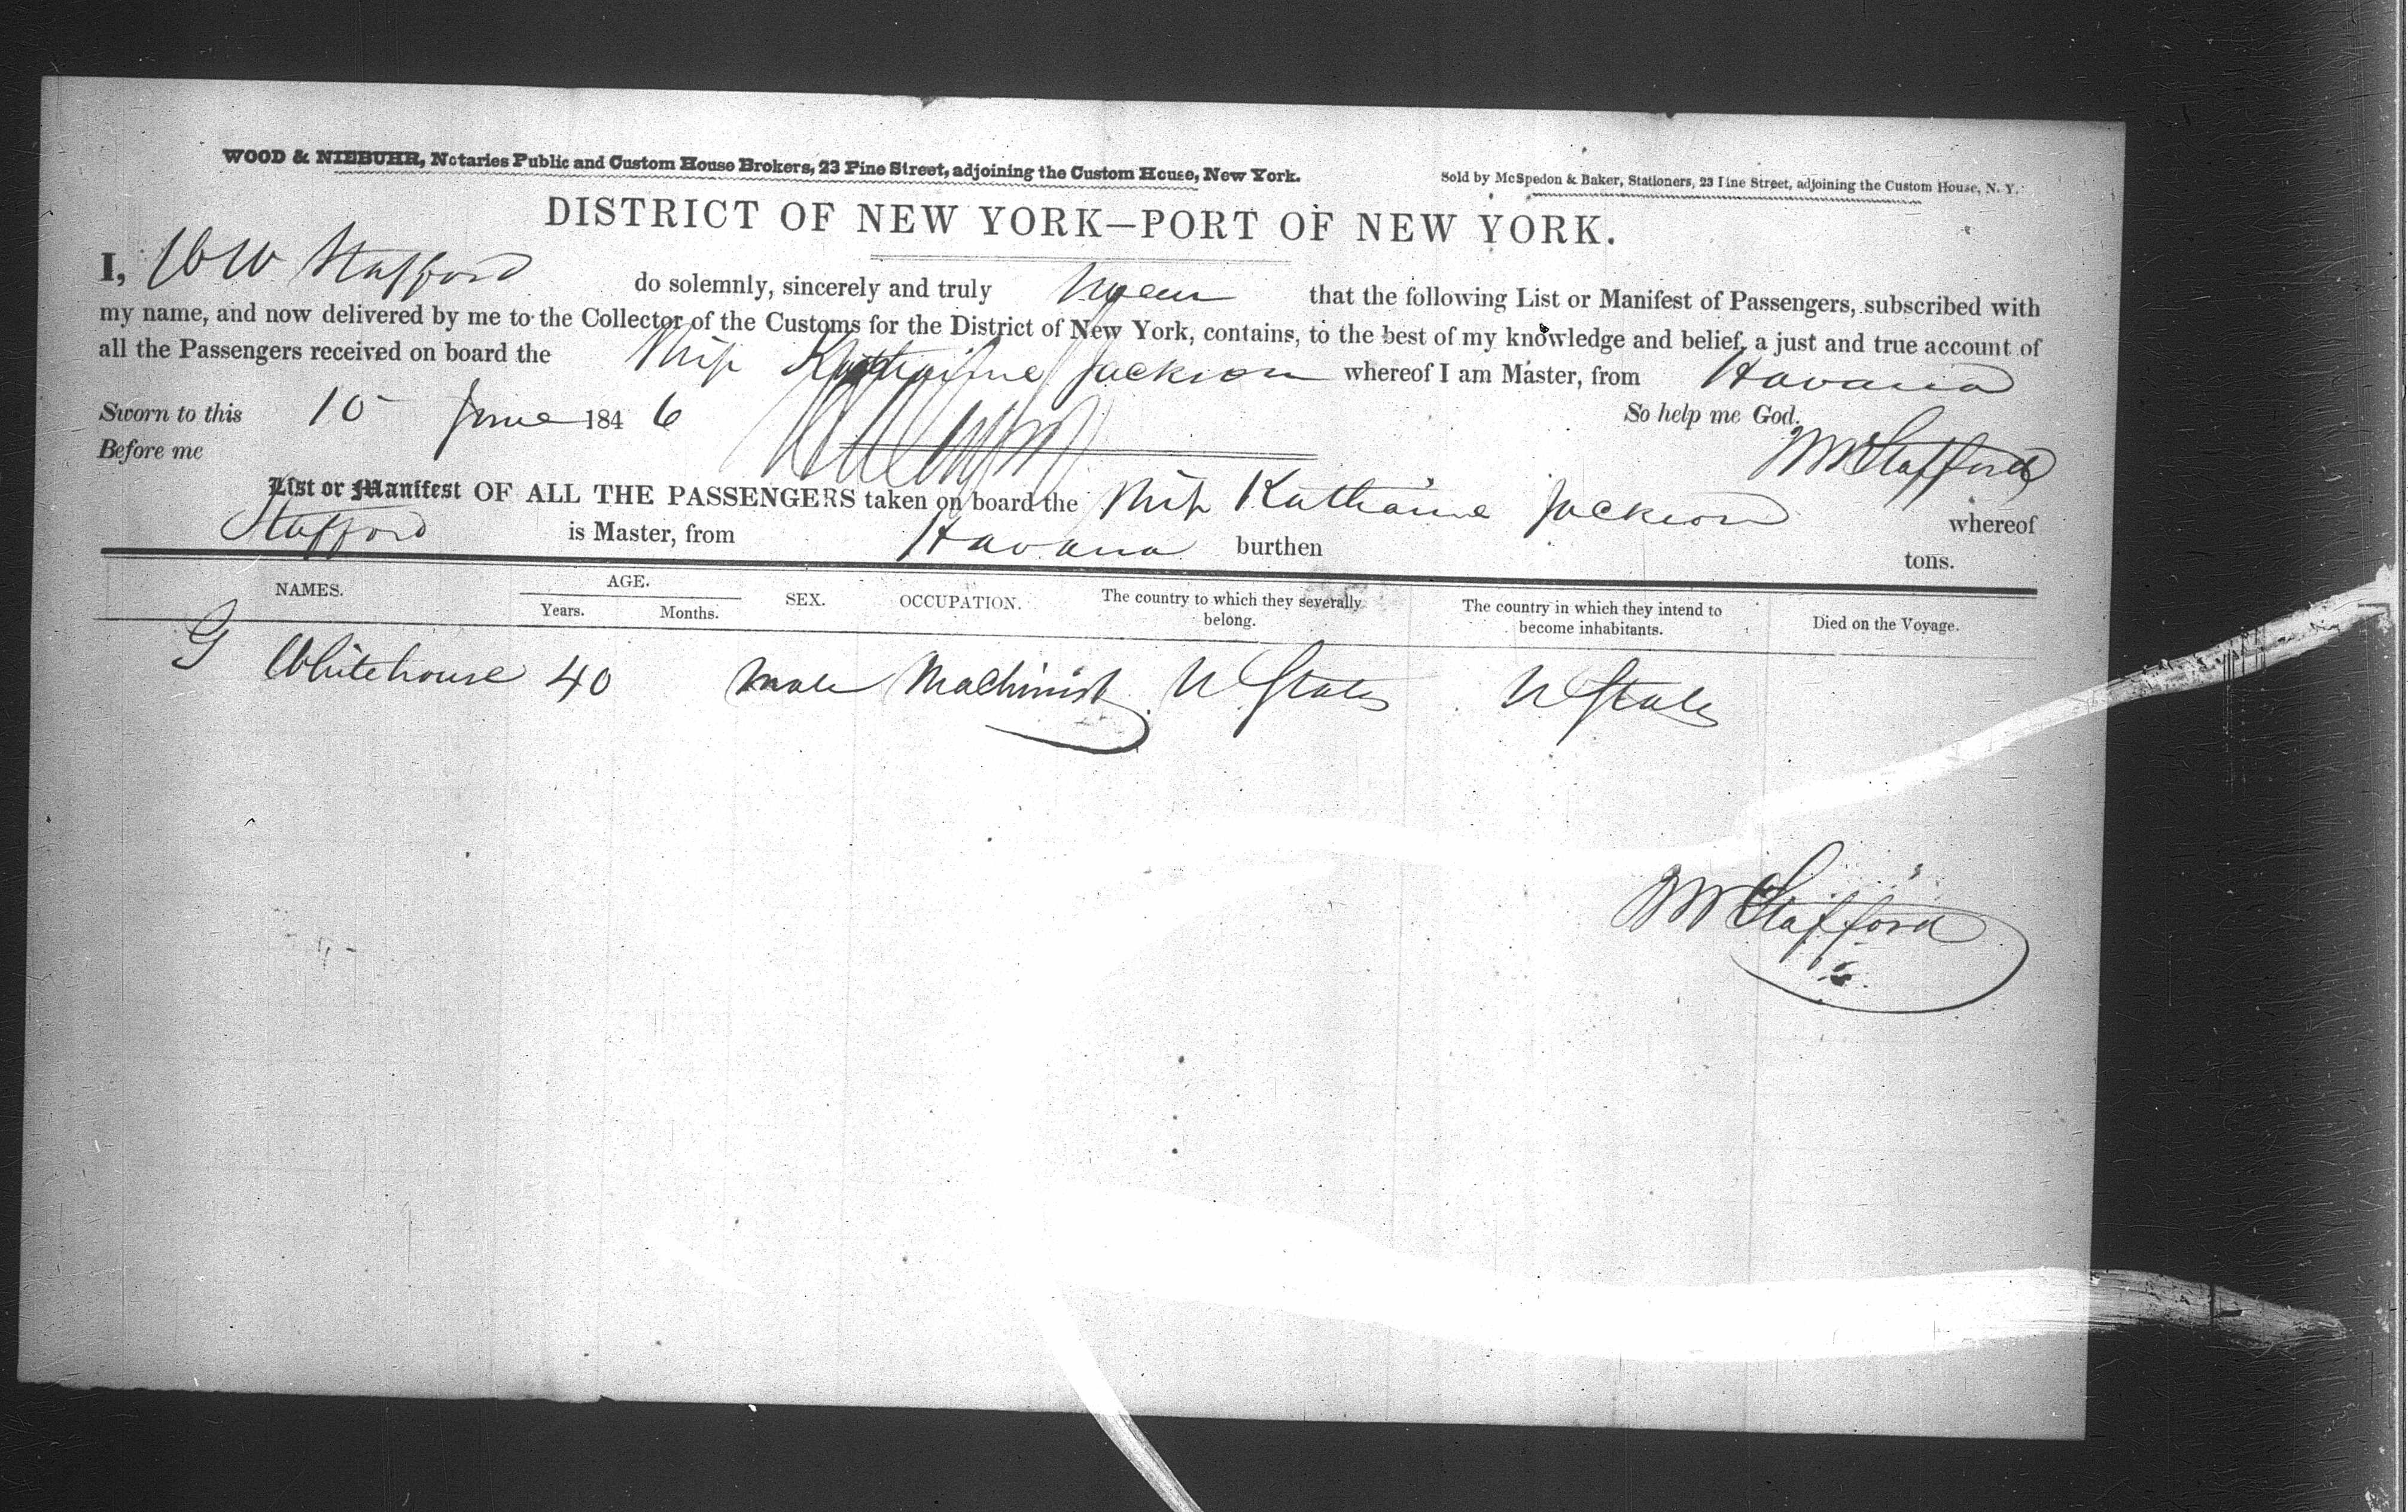 WOOD & NIEBUHR, Notaries Public and Custom House Brokers, 23 Pine Street, adjoining the Custom House, New York.
Sold by McSpedon & Baker, Stationers, 23 Pine Street, adjoining the Custom House, N. Y.
DISTRICT OF NEW YORK—PORT OF NEW YORK.
I, W Stafford do solemnly, sincerely and truly swear that the following List or Manifest of Passengers, subscribed with
my name, and now delivered by me to the Collector of the Customs for the District of New York, contains, to the best of my knowledge and belief, a just and true account of
all the Passengers received on board the Ship Katharine Jackson whereof I am Master, from Havana
Sworn to this 10 June 1846 So help me God.
Before me W Stafford
List or Manifest OF ALL THE PASSENGERS taken on board the Ship Katharine Jackson whereof
Stafford is Master, from Havana burthen tons.
NAMES. AGE. Years. Months. SEX. OCCUPATION. The country to which they severally belong. The country in which they intend to become inhabitants. Died on the Voyage.
G Whitehouse 40 male Machinist U States U States
W Stafford